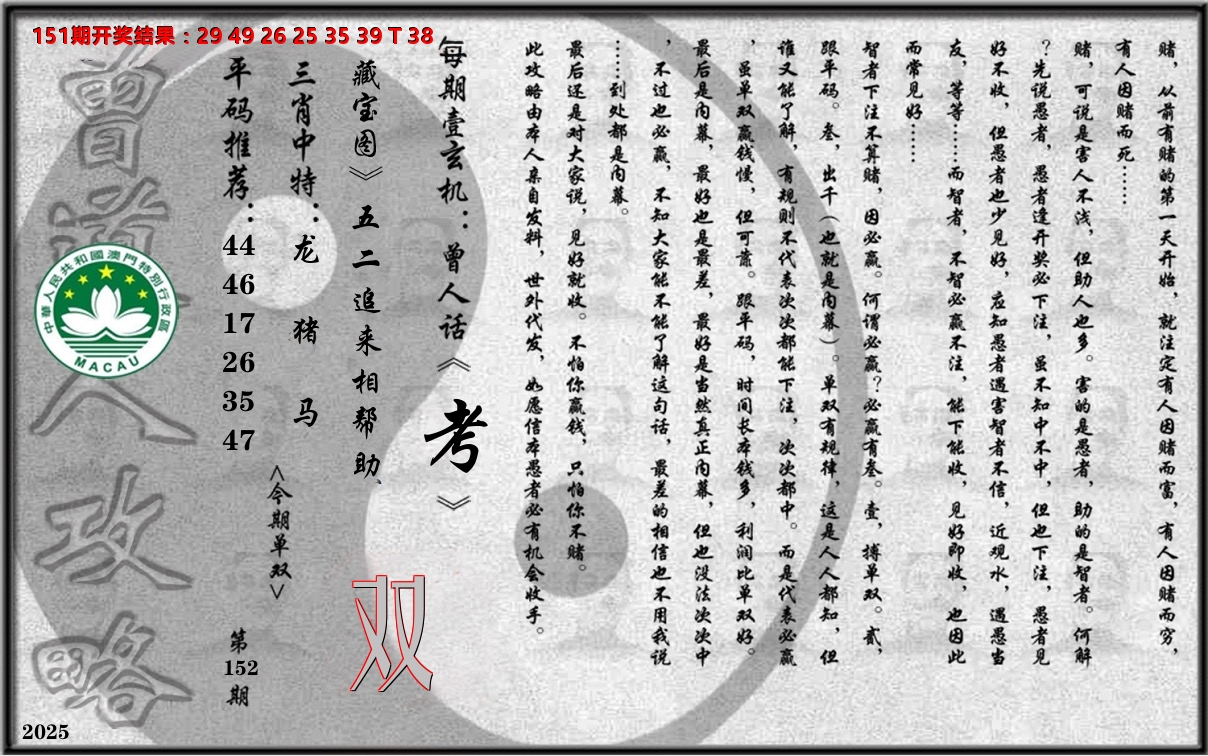 151期开奖结果：29 49 26 25 35 39 T 38
赌，从前有赌的第一天开始，就注定有人因赌而富，有人因赌而穷，
有人因赌而死……
赌，可说是害人不浅，但助人也多。害的是愚者，助的是智者。何解
？先说愚者，愚者逢开奖必下注，虽不知中不中，但也下注，愚者见
好不收，但愚者也少见好，应知愚者遇害智者不信，近观水，遇愚当
友，等等……而智者，不智必赢不注，能下能收，见好即收，也因此
而常见好……
智者下注不算赌，因必赢。何谓必赢？必赢有叁。壹，搏单双。贰，
跟平码。叁，出千（也就是内幕）。单双有规律，这是人人都知，但
谁又能了解，有规则不代表次次都能下注，次次都中。而是代表必赢
，虽单双赢钱慢，但可靠。跟平码，时间长本钱多，利润比单双好。
最后是内幕，最好也是最差，最好是当然真正内幕，但也没法次次中
，不过也必赢，不知大家能不能了解这句话，最差的相信也不用我说
……到处都是内幕。
最后还是对大家说，见好就收。不怕你赢钱，只怕你不赌。
此攻略由本人亲自发料，世外代发，如愿信本愚者必有机会收手。
每期壹玄机：曾人话《考》
藏宝图》五二追来相帮助、
双
三肖中特：龙 猪 马
<今期单双>
平码推荐：44 46 17 26 35 47
第152期
曾道人攻略
中華人民共和國澳門特別行政區
MACAU
2025